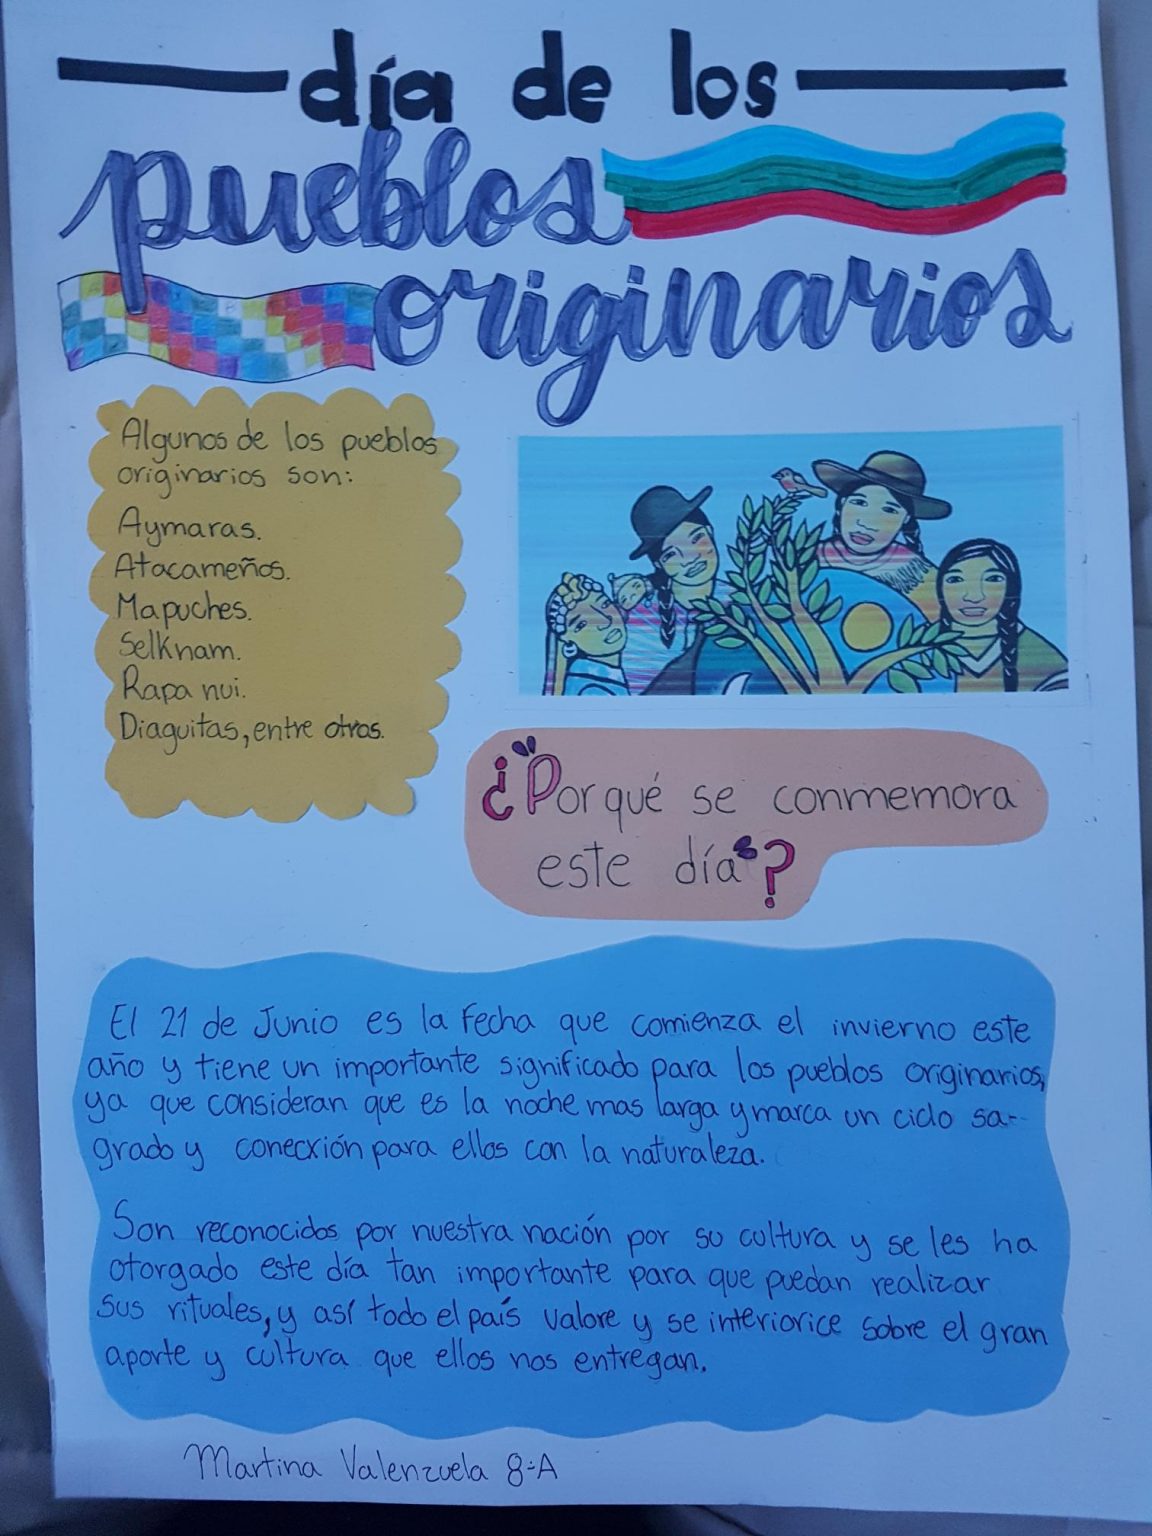 día de los
pueblos
originarios
Algunos de los pueblos
originarios son:
Aymaras.
Atacameños.
Mapuches.
Selknam.
Rapa nui.
Diaguitas, entre otros.
¿Por qué se conmemora
este día?
El 21 de Junio es la fecha que comienza el invierno este
año y tiene un importante significado para los pueblos originarios,
ya que consideran que es la noche mas larga y marca un ciclo sa-
grado y conecxión para ellos con la naturaleza.
Son reconocidos por nuestra nación por su cultura y se les ha
otorgado este día tan importante para que puedan realizar
sus rituales, y así todo el país valore y se interiorice sobre el gran
aporte y cultura que ellos nos entregan.
Martina Valenzuela 8-A